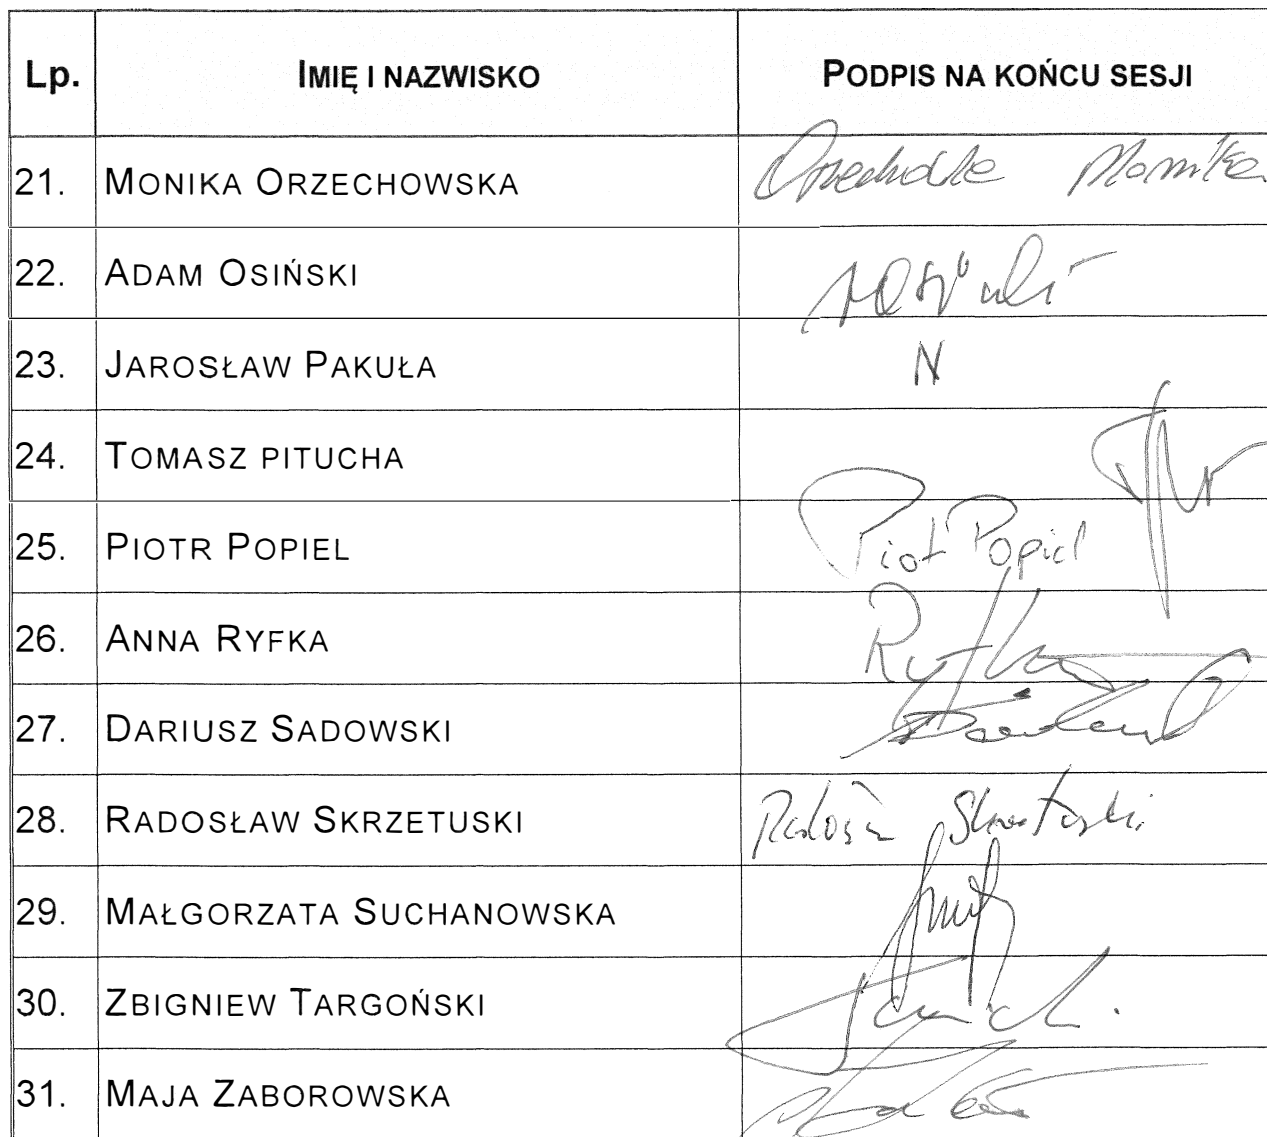 Lp. IMIĘ I NAZWISKO PODPIS NA KOŃCU SESJI
21. MONIKA ORZECHOWSKA Monika
22. ADAM OSIŃSKI
23. JAROSŁAW PAKUŁA N
24. TOMASZ PITUCHA
25. PIOTR POPIEL Piotr Popiel
26. ANNA RYFKA Ryfka
27. DARIUSZ SADOWSKI
28. RADOSŁAW SKRZETUSKI
29. MAŁGORZATA SUCHANOWSKA
30. ZBIGNIEW TARGOŃSKI
31. MAJA ZABOROWSKA